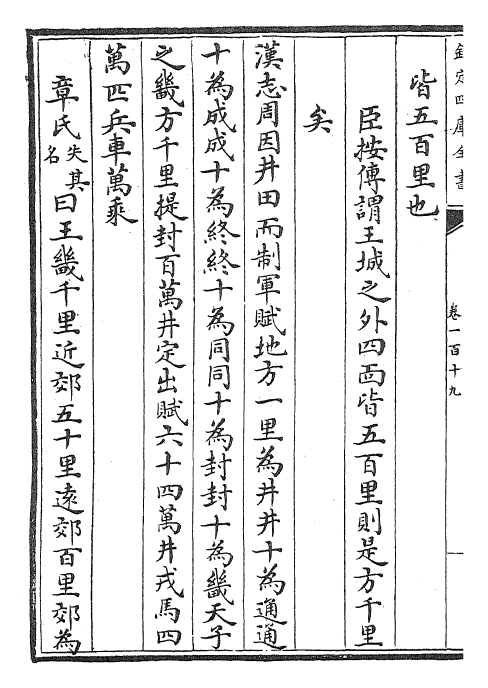 欽定四庫全書
卷一百十九
皆五百里也
臣按傳謂王城之外四面皆五百里則是方千里
矣
漢志周因井田而制軍賦地方一里為井井十為通通
十為成成十為終終十為同同十為封封十為畿天子
之畿方千里提封百萬井定出賦六十四萬井戎馬四
萬匹兵車萬乘
章氏失其名曰王畿千里近郊五十里遠郊百里郊為